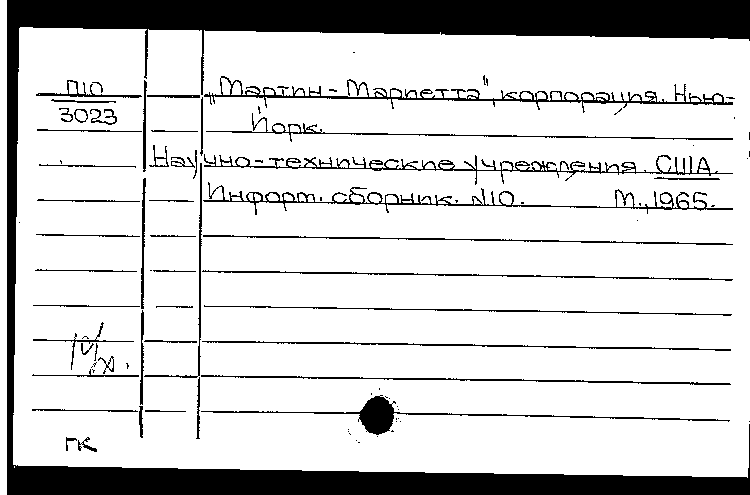 П10
3023
„Мартин-Мариетта", корпорация. Нью-
Йорк.
Научно-технические учреждения США.
Информ. сборник. №10. М., 1965.
ПК